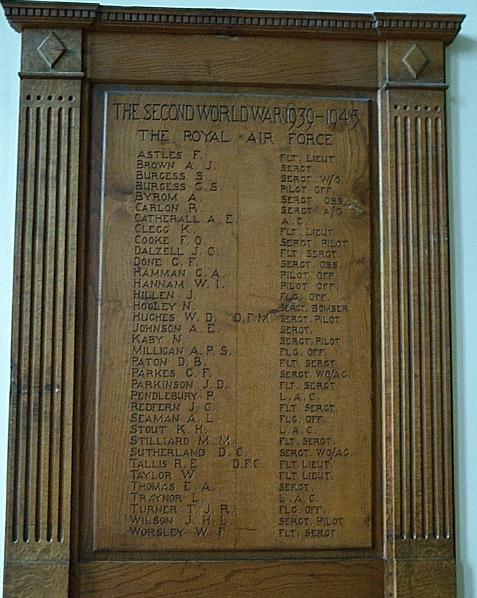 THE SECOND WORLD WAR 1939-1945
THE ROYAL AIR FORCE
ASTLES F. FLT. LIEUT
BROWN A. J. SERGT.
BURGESS S. SERGT. W/O
BURGESS C. S. PILOT OFF.
BYROM A. SERGT OBS
CARLON R. SERGT A/G
CATHERALL A. E. A. C.
CLEGG K. FLT. LIEUT
COOKE F. O. SERGT. PILOT
DALZELL J. C. FLT. SERGT.
DONE G. F. SERGT. OBS
HAMMAN C. A. PILOT OFF.
HANNAM W. I. PILOT OFF.
HILLEN J. FLG. OFF.
HOOLEY N. SERGT. BOMBER
HUGHES W. D. D.F.M. SERGT. PILOT
JOHNSON A. E. SERGT.
KABY N. SERGT. PILOT
MILLIGAN A. P. S. FLG. OFF.
PATON D. B. FLT. SERGT
PARKES G. F. SERGT. WO/AG
PARKINSON J. D. FLT. SERGT
PENDLEBURY P. L. A. C.
REDFERN J. C. FLT. SERGT.
SEAMAN A. L. FLG. OFF.
STOUT K. H. L. A. C.
STILLIARD M. M. FLT. SERGT.
SUTHERLAND D. C. SERGT. WO/AG
TALLIS R. E. D.F.C. FLT. LIEUT.
TAYLOR W. FLT. LIEUT.
THOMAS E. A. SERGT.
TRAYNOR L. L. A. C.
TURNER T. J. R. FLG. OFF.
WILSON J. H. L. SERGT. PILOT
WORSLEY W. F. FLT. SERGT.